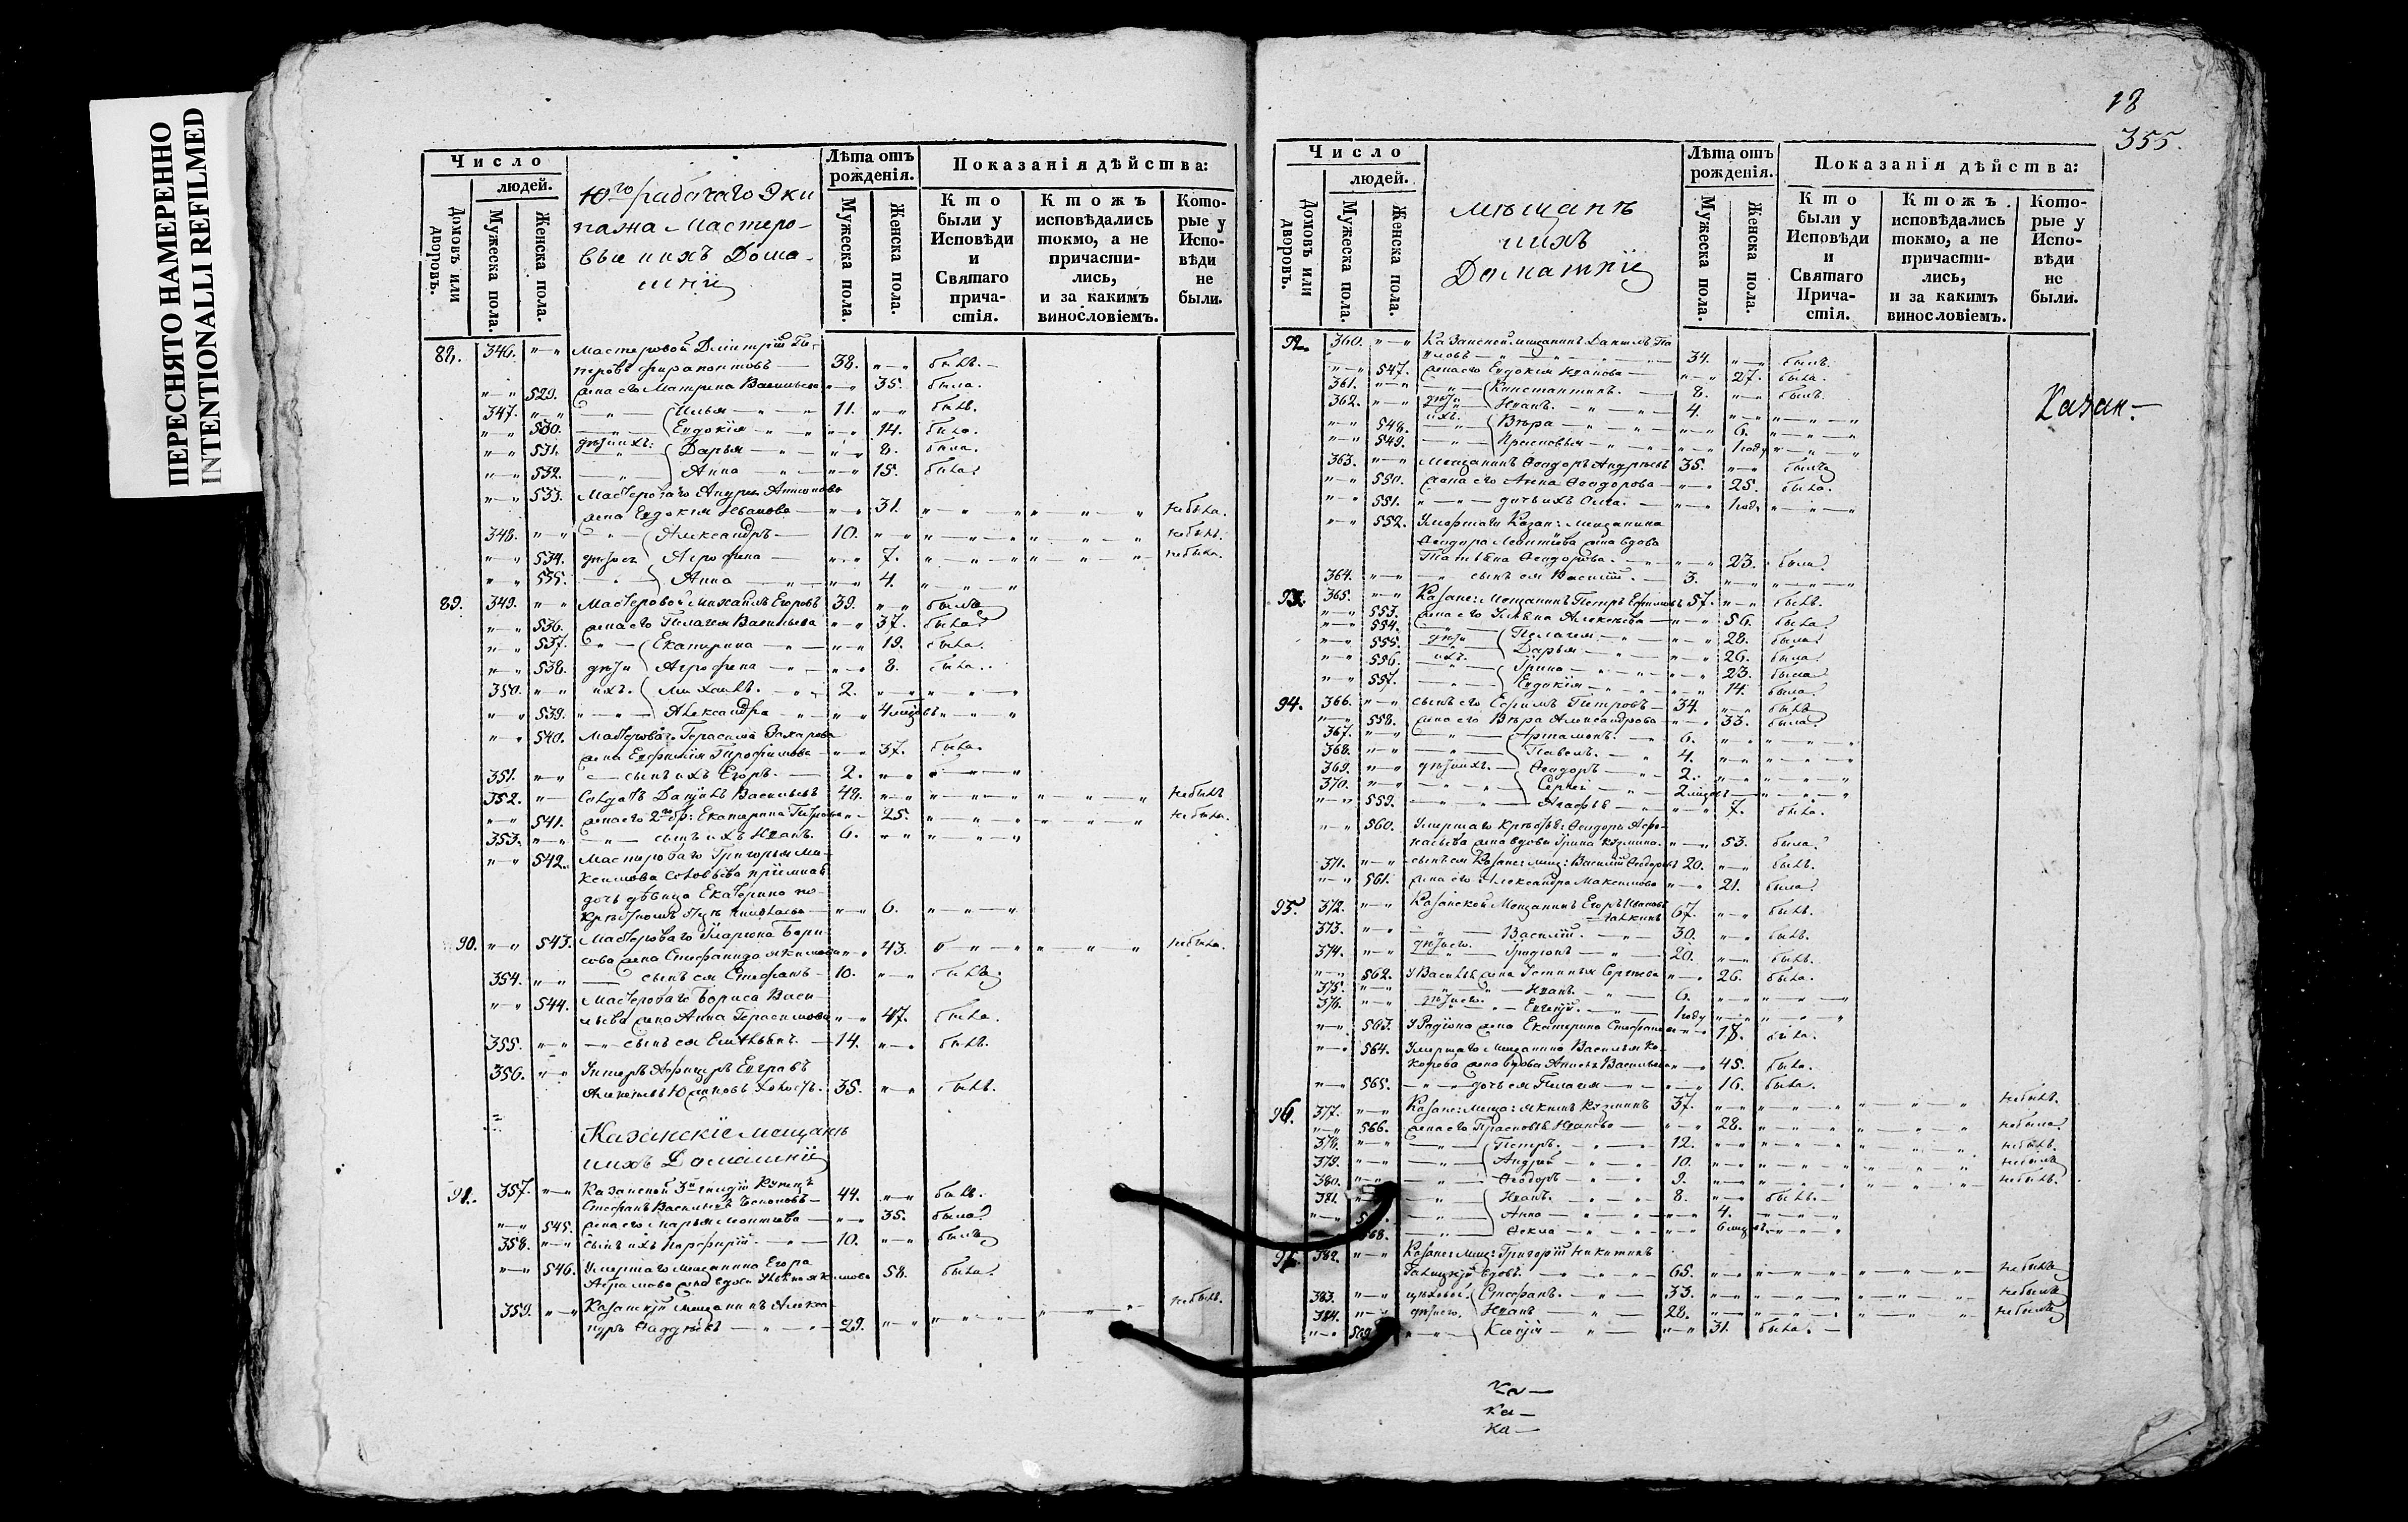 ПЕРЕСНЯТО НАМЕРЕННО
INTENTIONALLI REFILMED
Число
людей.
Домовъ или дворовъ.
Мужеска пола.
Женска пола.
10го рабочаго Эки
пажа Мастеро-
вые ихъ Дома-
шніи
Лѣта отъ рожденія.
Мужеска пола.
Женска пола.
Показанія дѣйства:
Кто были у Исповѣди и Святаго причастія.
Ктожъ исповѣдались токмо, а не причастились, и за какимъ винословіемъ.
Которые у Исповѣди не были.
346. Мастеровой Дмитрій Пе-
тровъ 38. былъ.
529. жена его Матрена Васильева 35. была.
347. Илья 11. былъ.
530. Евдокія 14. была.
531. дѣти ихъ: Дарья 8. была.
532. Анна 15. была.
533. Мастероваго Андрея Антонова
жена Евдокія Иванова 31. небыла.
348. Александръ 10. небылъ.
534. дѣти Агрофена 7. небыла.
535. Анна 4.
89. 349. Мастеровой Михаилъ Егоровъ 39. былъ
536. жена его Пелагея Васильева 37. была
537. Екатерина 19. была.
538. дѣти Агрофена 8. была.
350. ихъ. Михаилъ. 2.
539. Александра 4 мѣсцовъ
540. Мастероваго Герасима Захарова
жена Евфимія Трофимова 37. была.
351. сынъ ихъ Егоръ. 2.
352. Солдатъ Данилъ Васильевъ 48. небылъ
541. жена его 2го бр: Екатерина Петрова 25. небыла.
353. сынъ ихъ Иванъ. 6.
542. Мастероваго Григорья Ма-
ксимова Соловьева пріемная
дочь дѣвица Екатерина по
6.
90. 543. Мастероваго Бори-
сова жена Стефанида Якимова 43. небыла.
354. сынъ ея Стефанъ 10. былъ
544. Мастероваго Бориса Васи-
льева жена Анна Герасимова 47. была.
355. сынъ ея Емельянъ. 14. былъ.
356. Унтеръ Афицеръ Евграфъ
Алексѣевъ холостъ. 35. былъ.
Казанскіе Мещанъ
ихъ Домашніи
91. 357. Казанской 3й гилдіи Купецъ
Стефанъ Васильевъ 44. былъ.
545. жена его Марья Леонтьева 35. была
358. сынъ ихъ Порфирій. 10. былъ
546. Умершаго Мещанина Егора
Абрамова жена вдова Якимова 58. была.
359. Казанскій Мещанинъ Алекса-
ндръ 29. небылъ.
18
355.
Число
людей.
Домовъ или дворовъ.
Мужеска пола.
Женска пола.
Мѣщанъ
ихъ
Домашніи
Лѣта отъ рожденія.
Мужеска пола.
Женска пола.
Показанія дѣйства:
Кто были у Исповѣди и Святаго Причастія.
Ктожъ исповѣдались токмо, а не причастились, и за какимъ винословіемъ.
Которые у Исповѣди не были.
Казан-
92. 360. Казанской мещанинъ Данилъ Па
вловъ 34. былъ.
547. жена его Евдокія Иванова 27. была.
361. Константинъ. 8. былъ.
362. дѣти Иванъ. 4.
548. ихъ. Вѣра 6.
549. Прасковья 1 году
363. Мещанинъ Ѳеодоръ Андреевъ 35. былъ
550. жена его Анна Ѳеодорова 25. была.
551. дочь ихъ Олга. 1 году
552. Умершаго Казан: Мещанина
Ѳеодора Леонтьева жена вдова
Татьяна Ѳеодорова. 23. была
364. сынъ ея Василій. 3.
93. 365. Казанс: Мещанинъ Петръ Ефимовъ 57. былъ.
553. жена его Ульяна Алексѣева 56. была
554. Пелагея 28. была
555. дѣти Дарья 26. была
556. ихъ. Ирина 23. была
557. Евдокія 14. была
94. 366. сынъ его Ефимъ Петровъ 34. былъ
558. жена его Вѣра Александрова 33. была.
367. Артамонъ. 6.
368. Павелъ. 4.
369. дѣти ихъ. Ѳеодоръ 2.
370. Сергей 2 мѣсцовъ
559. Агафья 7. была.
560. Умершаго Ѳеодора Афо-
насьева жена вдова Ирина Кузмина. 53. была
371. сынъ ея Казанс: мещ: Василій Ѳеодоровъ 20. былъ.
561. жена его Александра Максимова 21. была.
95. 372. Казанской Мещанинъ Егоръ Ивановъ
Галкинъ 67. былъ.
373. Василій. 30. былъ.
374. дѣти его. Иродіонъ 20. былъ.
562. У Василья жена Устинья Сергеева 26. была.
375. Иванъ. 6.
376. дѣти его. Евгеній. 1 году
563. У Родіона жена Екатерина Стефанова 18. была.
564. Умершаго Мещанина Василья Ко-
жена вдова Анисья Васильева 45. была.
565. дочь ея Пелагея 16. была.
96. 377. Казанс: Меща: Якимъ Кузминъ 37. небылъ.
566. жена его Прасковья Иванова 28. небыла.
378. Петръ. 12. небылъ.
379. Андрей 10. небылъ
380. Ѳеодоръ 9. небылъ.
381. Иванъ. 8. былъ.
Анна 4.
568. Ѳекла 6 мѣсцовъ
97. 382. Казанс: Мещ: Григорій Никитинъ
Галицкій вдовъ. 65. небылъ
383. цеховой. Стефанъ. 33. небылъ
384. дѣти его. Иванъ 28. небылъ
569. Ксенія 31. была.
ка-
ка-
ка-